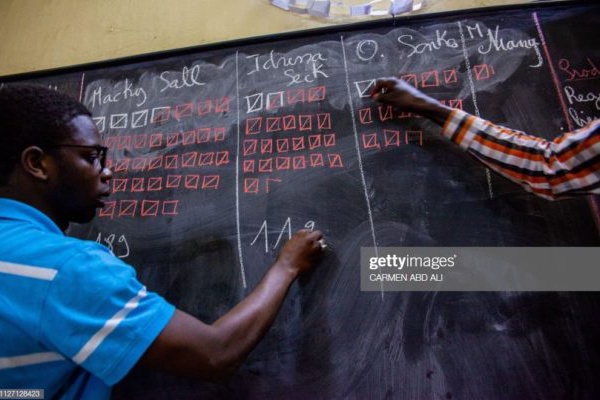 Macky Sall
Idrissa
Seck
O. Sonko
M
Niang
189
119
gettyimages
CARMEN ABD ALI
1127128423